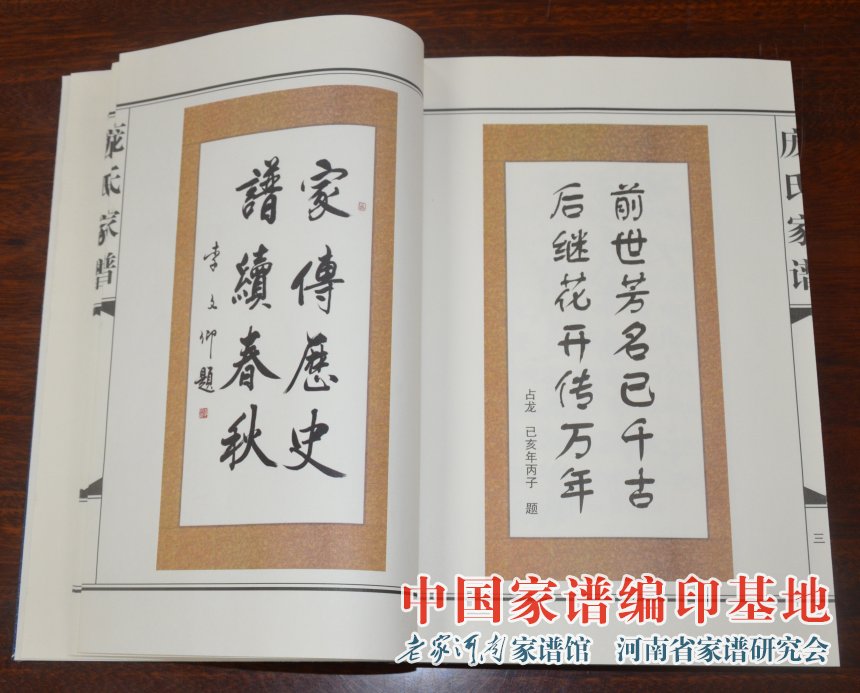 庞氏家谱
家傳歷史
譜續春秋
李文仰題
庞氏家谱
前世芳名已千古
后继花开传万年
占龙 已亥年丙子 题
三
中国家谱编印基地
老家河南家谱馆 河南省家谱研究会